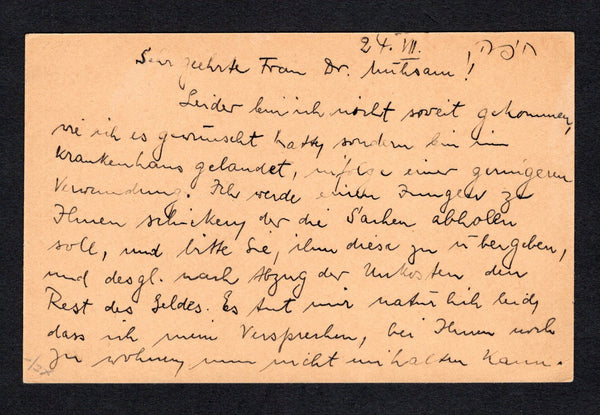 24. VII. חיפה,
Sehr geehrte Frau Dr. Mühsam!
Leider bin ich nicht soweit gekommen,
wie ich es gewünscht hatte, sondern bin im
Krankenhaus gelandet, infolge einer geringeren
Verwundung. Ich werde einen Jungen zu
Ihnen schicken, der die Sachen abholen
soll, und bitte Sie, ihm diese zu übergeben,
und desgl. nach Abzug der Unkosten den
Rest des Geldes. Es tut mir natürlich leid,
dass ich mein Versprechen, bei Ihnen noch
zu wohnen, nun nicht einhalten kann.